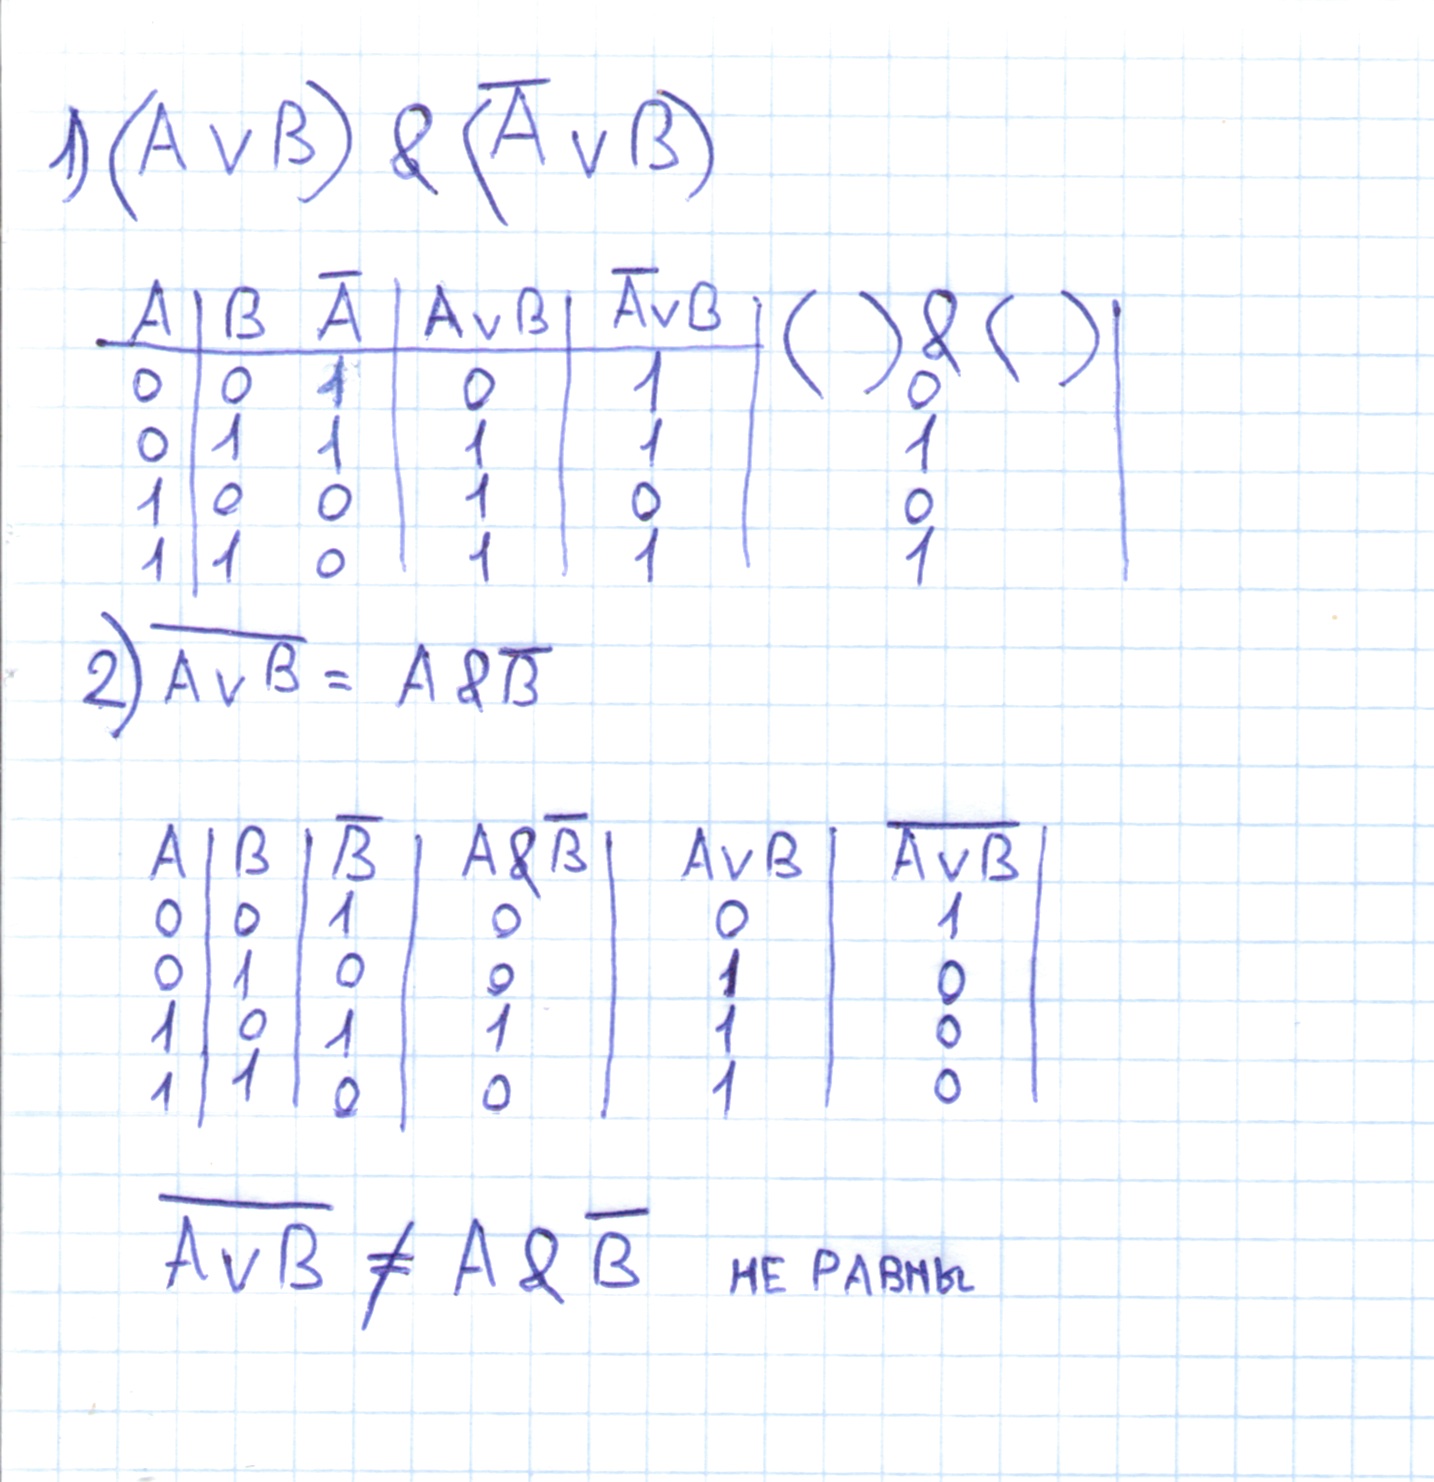 1) (A v B) & (A̅ v B)
A | B A̅ | A v B | A̅ v B | ( ) & ( ) |
0 | 0 1 | 0 | 1 | 0
0 | 1 1 | 1 | 1 | 1
1 | 0 0 | 1 | 0 | 0
1 | 1 0 | 1 | 1 | 1
2) A̅ ̅v̅ ̅B̅ = A & B̅
A | B | B̅ | A & B̅ | A v B | A̅ ̅v̅ ̅B̅ |
0 | 0 | 1 | 0 | 0 | 1
0 | 1 | 0 | 0 | 1 | 0
1 | 0 | 1 | 1 | 1 | 0
1 | 1 | 0 | 0 | 1 | 0
A̅ ̅v̅ ̅B̅ ≠ A & B̅ НЕ РАВНЫ